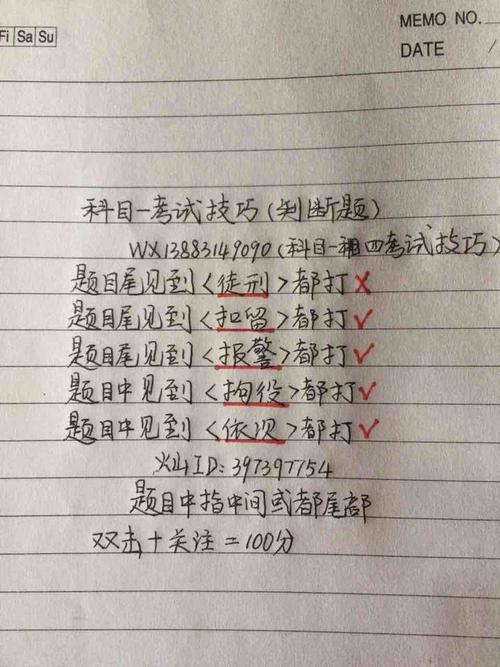 Fi Sa Su
MEMO NO.
DATE /
科目一考试技巧(判断题)
WX13883149090(科目一和四考试技巧)
题目尾见到<徒刑>都打×
题目尾见到<扣留>都打✓
题目尾见到<报警>都打✓
题目中见到<拘役>都打✓
题目中见到<依次>都打✓
火山ID:397397754
题目中指中间或都尾部
双击+关注=100分